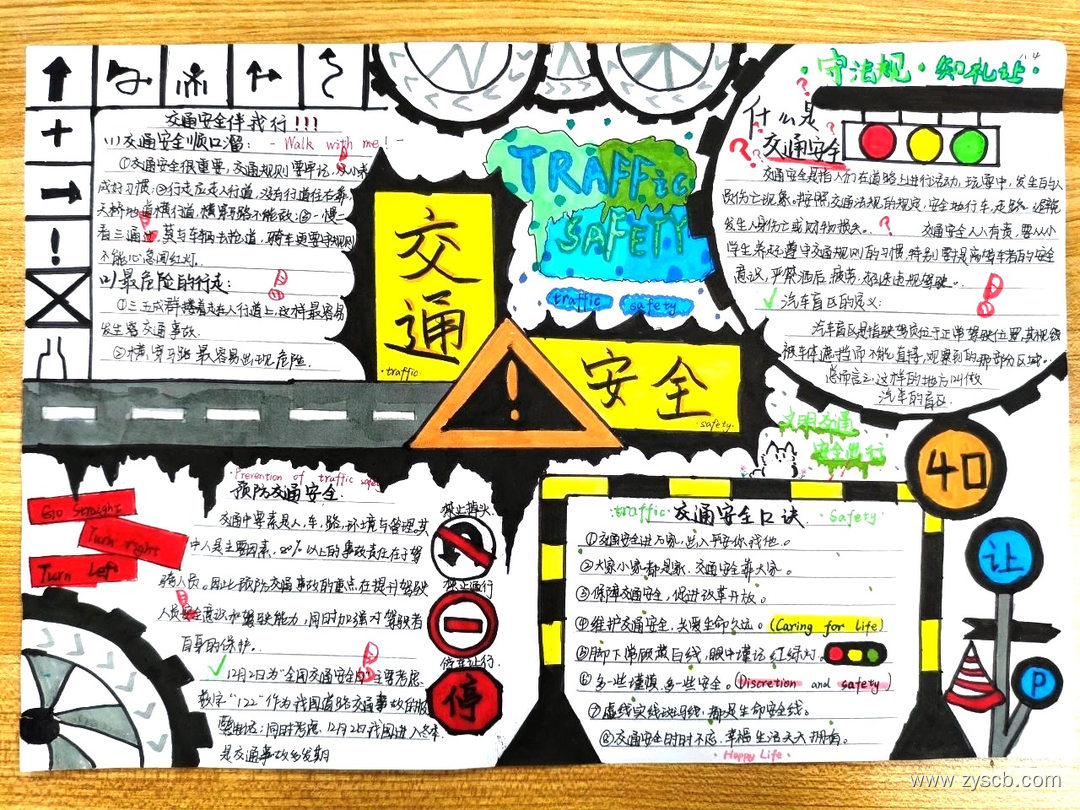 交通安全伴我行!!!
(1)交通安全顺口溜: - Walk with me! -
①交通安全很重要,交通规则要牢记,从小养
成好习惯.②行走应走人行道,没有行道往右靠
天桥地道横行道,横穿马路不能放;③一慢二
看三通过,莫与车辆去抢道,骑车更要守规则
不能心急闯红灯.
(2)最危险的行走:
①三五成群横着走在人行道上,这样最容易
发生交通事故.
②横穿马路最容易出现危险.
TRAFFic
SAFETY
traffic safety
交通
·traffic·
安全
·safety·
·守法规·知礼让·
什么是
交通安全
???
交通安全是指人们在道路上进行活动,玩耍中,发生
员伤亡现象.按照交通法规的规定,安全地行车,走路,
发生人身伤亡或财物损失。 交通安全人人有责,要从小
学生养好遵守交通规则的习惯,特别要提高驾车者的安全
意识,严禁酒后,疲劳,超速违规驾驶.
汽车盲区的定义:
汽车盲区是指驾驶员位于正常驾驶位置,其视线
被车体遮挡而不能直接观察到的那部分区域.
总而言之,这样的地方叫做
汽车的盲区.
文明交通
安全出行
40
让
P
Go Straight
Turn right
Turn Left
·Prevention of traffic safety
预防交通安全.
交通中要素是人,车,路,环境与管理,其
中人是主要因素,80%以上的事故责任在于驾
驶人员。因此预防交通事故的重点在提升驾驶
人员安全意识和驾驶能力,同时加强对驾驶者
自身的保护。
12月2日为"全国交通安全日"主要考虑,
数字"122"作为我国道路交通事故
电话;同时考虑,12月2日我国进入冬季.
是交通事故多发期
禁止掉头.
禁止通行
停车让行.
停
traffic· 交通安全口诀 ·Safety
①交通安全进万家,出入平安你我他。
②大家小家都是家,交通安全靠大家。
③保障交通安全,促进改革开放。
④维护交通安全,关爱生命久远。(Caring for life)
⑤脚下常踩黄白线,眼中谨记红绿灯.
⑥多一些谨慎,多一些安全。(Discretion and safety)
⑦虚线实线斑马线,都是生命安全线。
⑧交通安全时时不忘,幸福生活天天拥有。
·Happy Life·
www.zyscb.com